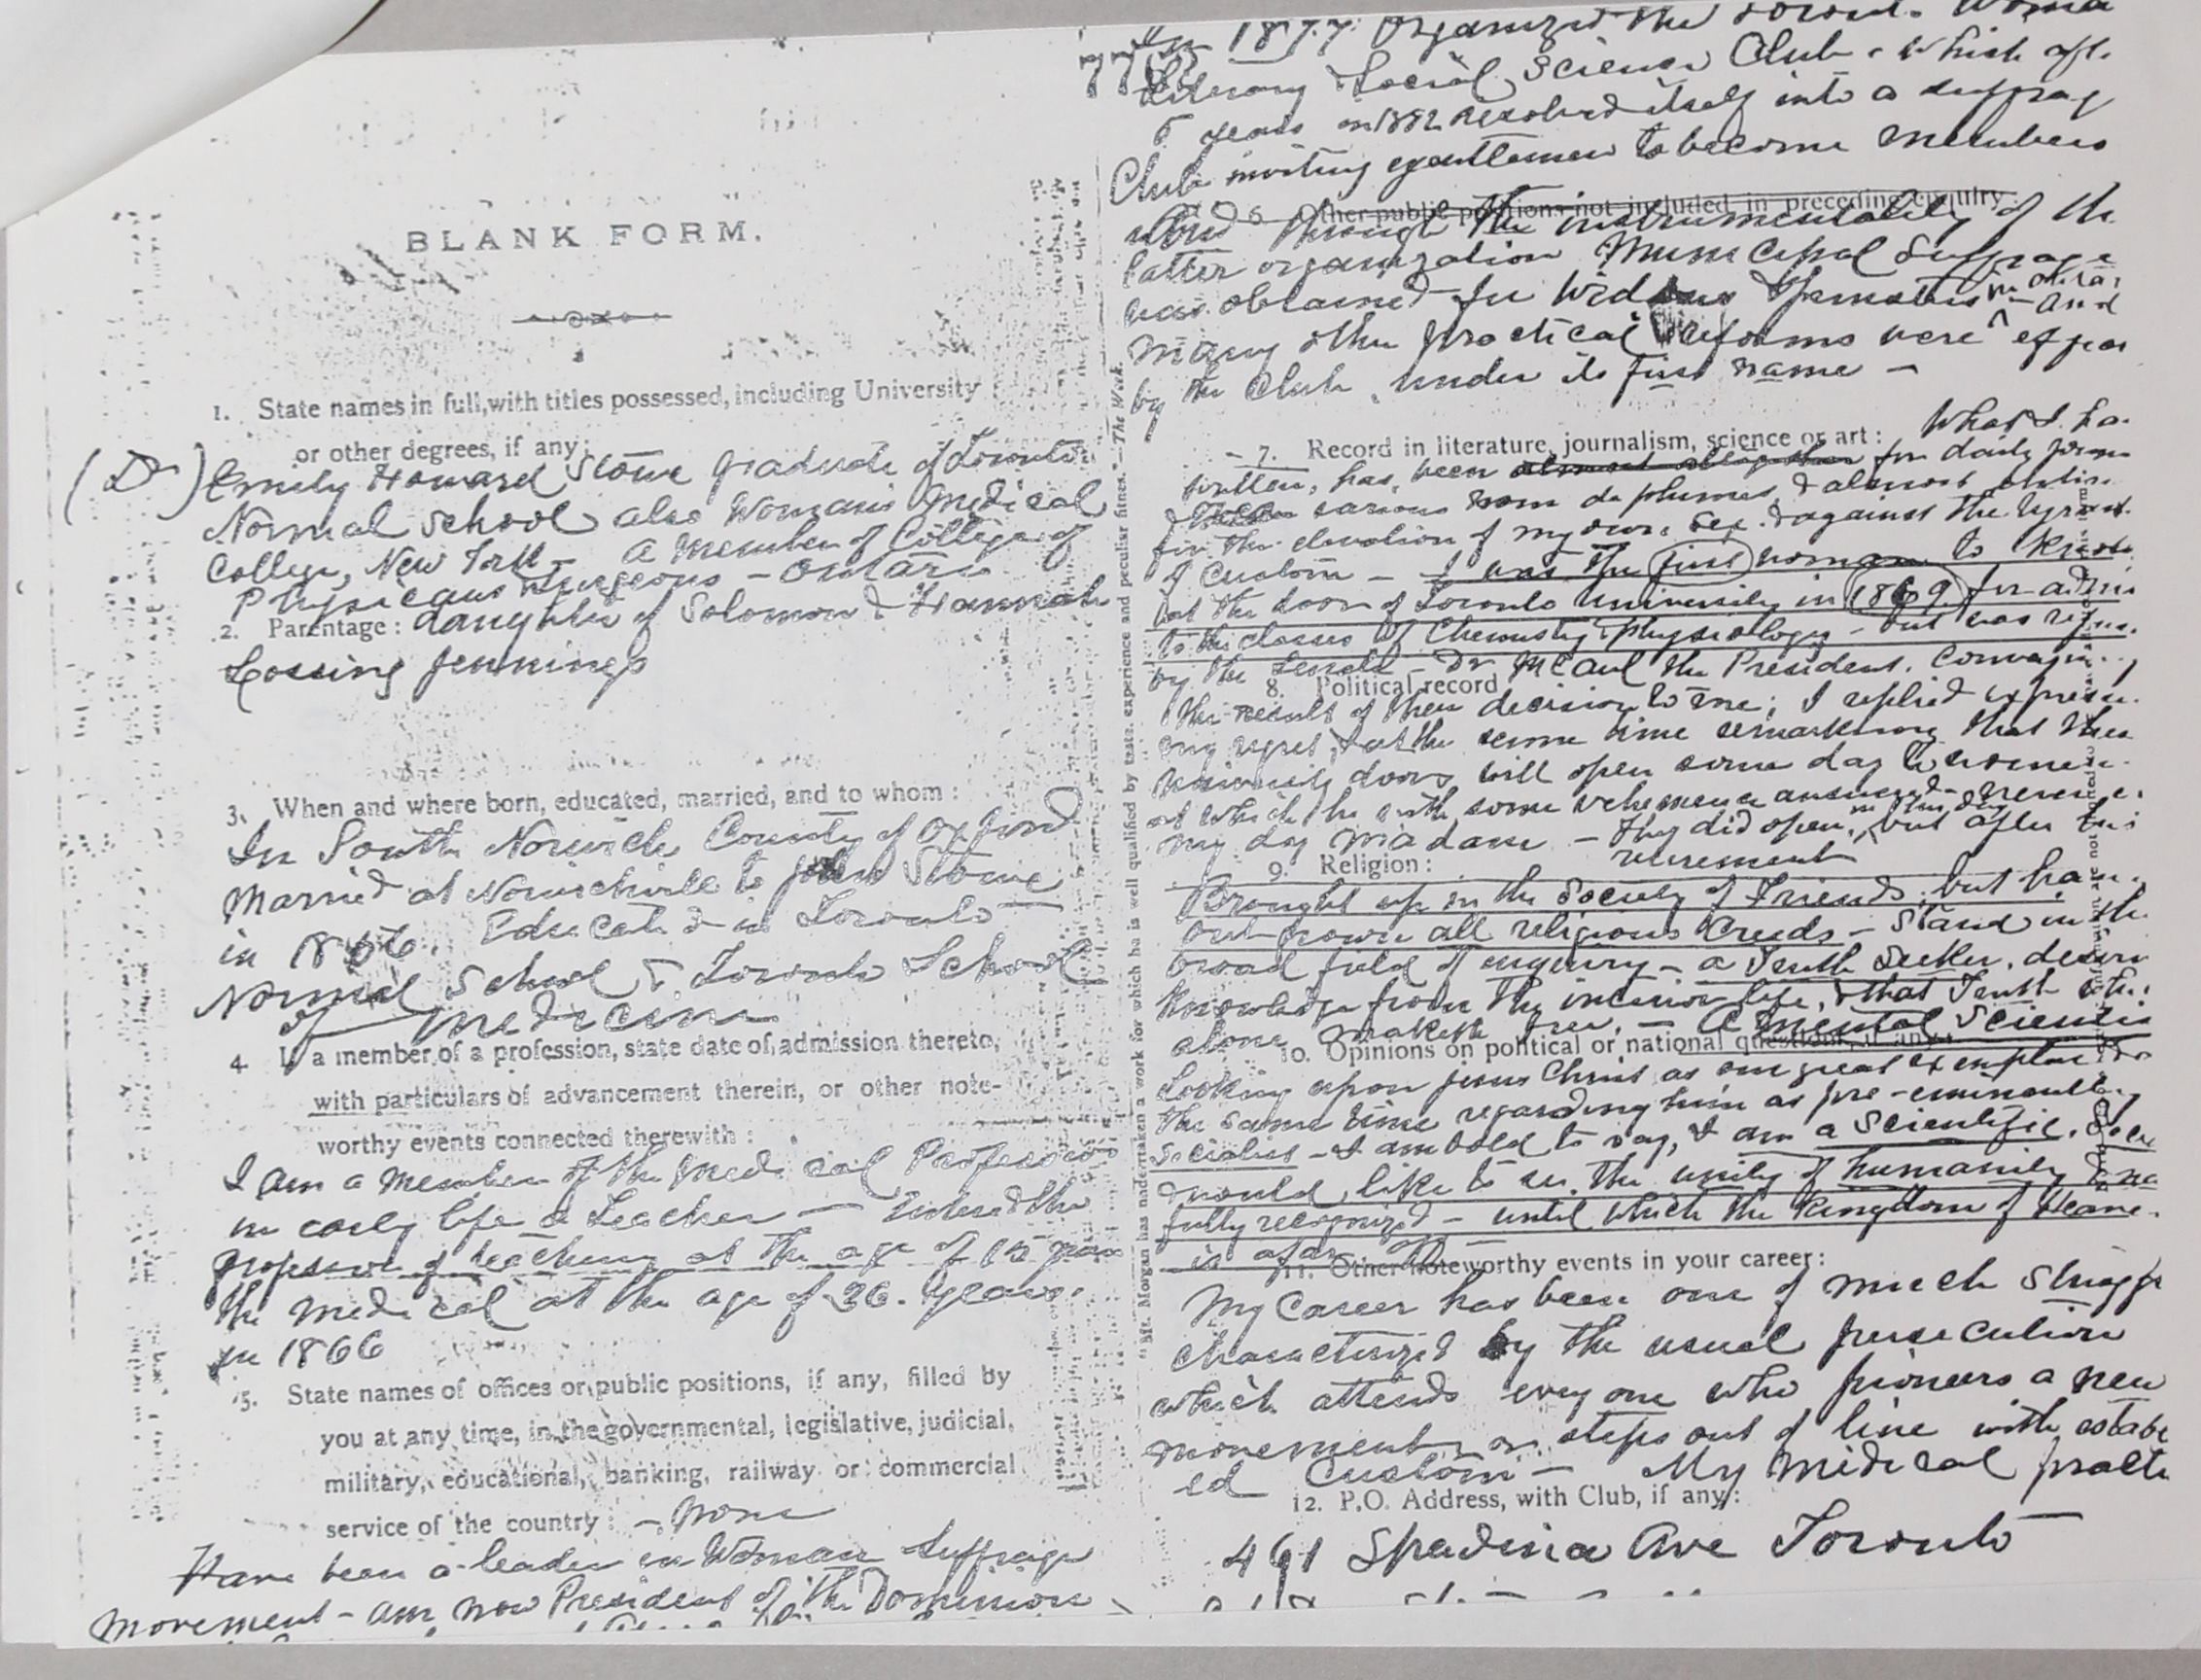 BLANK FORM.
1. State names in full, with titles possessed, including University
or other degrees, if any:
(Dr) Emily Howard Stowe graduate of Toronto
Normal School also Womans Medical
College, New York – a Member of College of
Physicians & Surgeons – Ontario
2. Parentage: daughter of Solomon & Hannah
Lossing Jennings
3. When and where born, educated, married, and to whom:
In South Norwich County of Oxford
Married at Norwichville to John Stowe
in 1856. Educated in Toronto
Normal School & Toronto School
of Medicine
4. If a member of a profession, state date of admission thereto,
with particulars of advancement therein, or other note-
worthy events connected therewith:
I am a member of the Medical Profession
in early life a Teacher – Entered the
profession of teaching at the age of 15 years
the medical at the age of 36. years.
in 1866
5. State names of offices or public positions, if any, filled by
you at any time, in the governmental, legislative, judicial,
military, educational, banking, railway or commercial
service of the country: – None
Have been a leader in Woman Suffrage
movement – am now President of the Dominion
"Mr. Morgan has undertaken a work for which he is well qualified by taste, experience and peculiar fitness."—The Week.
77
In 1877. Organized the Toronto Woman
Literary & Social Science Club. Which aft.
5 years in 1882 resolved itself into a Suffrag
Club inviting gentlemen to become members
6. Other public positions not included in preceding enquiry:
and through the instrumentality of th
latter organization Municipal Suffrage
was obtained for Widows & Spinsters in Ontar – and
many other practical reforms were
by the Club, under its first name –
7. Record in literature, journalism, science or art: What I ha
written, has, been for daily
various nom de plumes, & almost entir
for the elevation of my own sex. & against the tyran
of Custom – I was the first woman to knock
at the door of Toronto University in 1869. for admi
to the classes of Chemistry & physiology – but was refus.
by the Senate – Dr McCaul the President. Conveyin
8. Political record
the result of their decision to me; I replied expressi
my regret, & at the same time remarking that these
University doors will open some day to women –
at which he with some vehemence answered – never i
my day Madam – They did open, in his day but after his
retirement
9. Religion:
Brought up in the Society of Friends, but hav
outgrown all religious Creeds – Stand in the
broad field of enquiry – a Truth Seeker, desiri
knowledge from the interior life, & that Truth whi
alone maketh free. – A Mental Scientis
10. Opinions on political or national questions, if any:
Looking upon Jesus Christ as our great exemplar &
the same time regarding him as pre-eminently
Socialist – I am bold to say, I am a Scientific.
& would like to see the unity of humanity
fully recognized – until which the Kingdom of Heave
is afar off –
11. Other noteworthy events in your career:
My Career has been one of much Struggl
characterized by the usual persecution
which attends everyone who pioneers a new
movement or steps out of line with establ
ed Custom – My Medical practi
12. P.O. Address, with Club, if any:
461 Spadina Ave Toronto